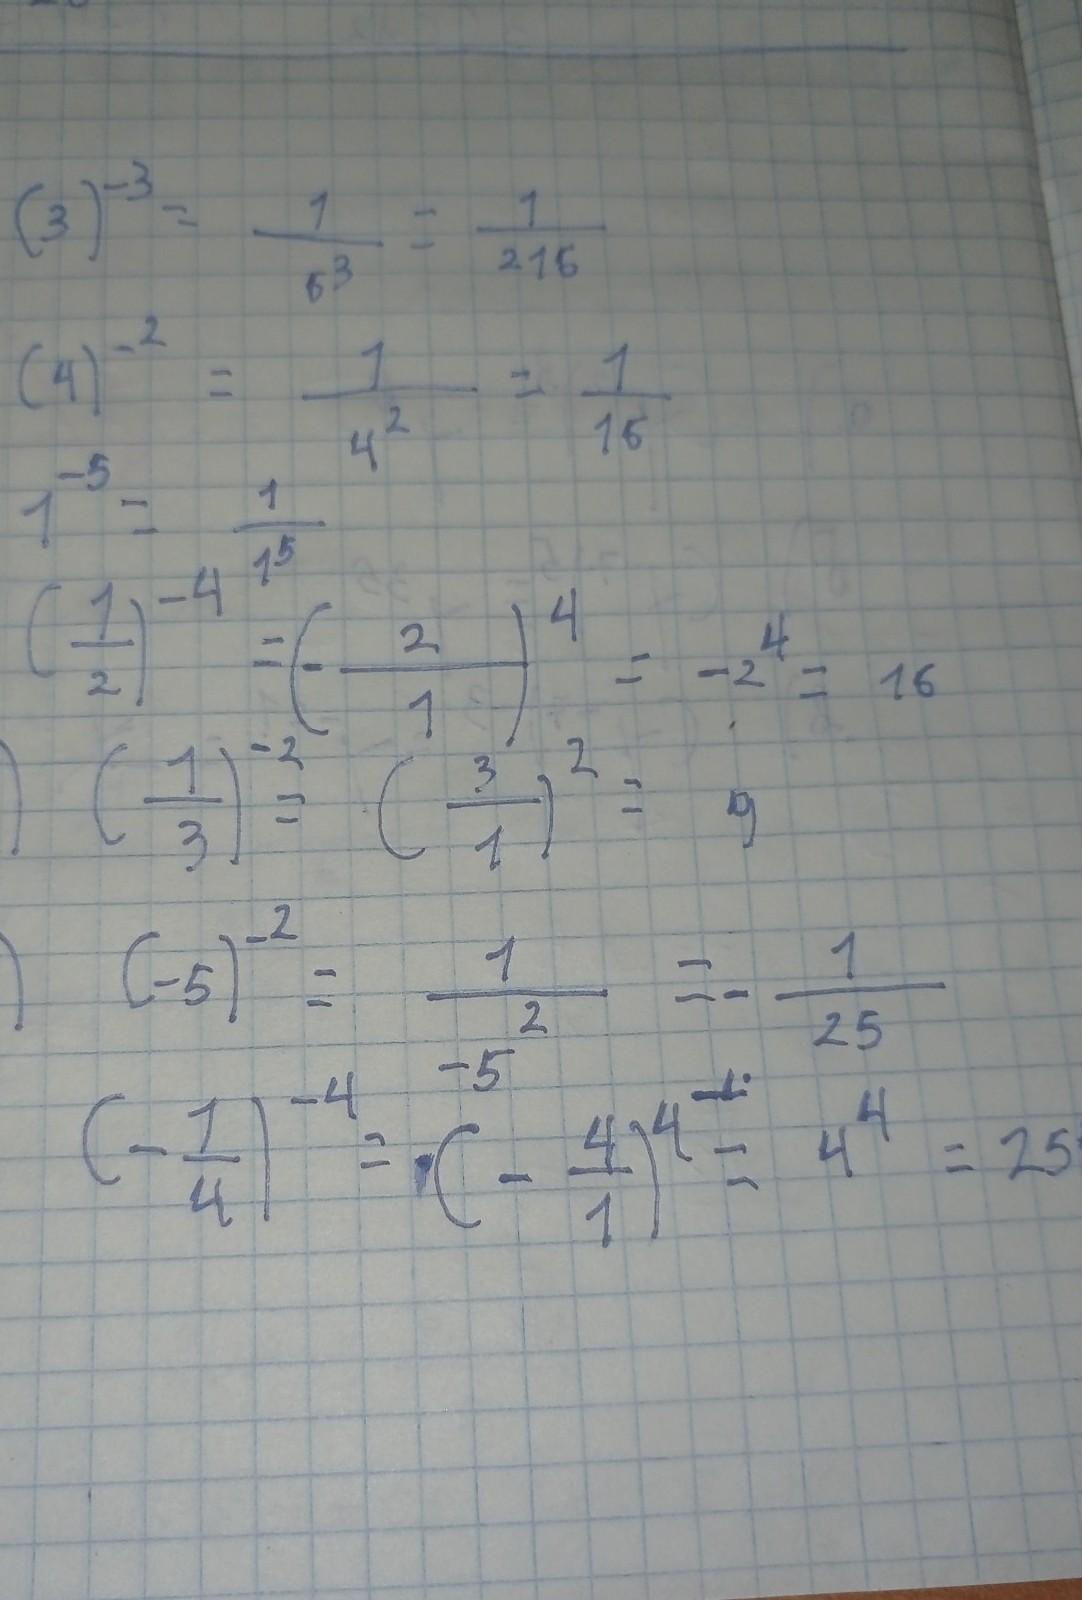 (3)^-3 = 1/6^3 = 1/216
(4)^-2 = 1/4^2 = 1/16
1^-5 = 1/1^5
(1/2)^-4 = (-2/1)^4 = -2^4 = 16
) (1/3)^-2 = (3/1)^2 = 9
) (-5)^-2 = 1/-5^2 = -1/25
(-1/4)^-4 = (-4/1)^4 = 4^4 = 25